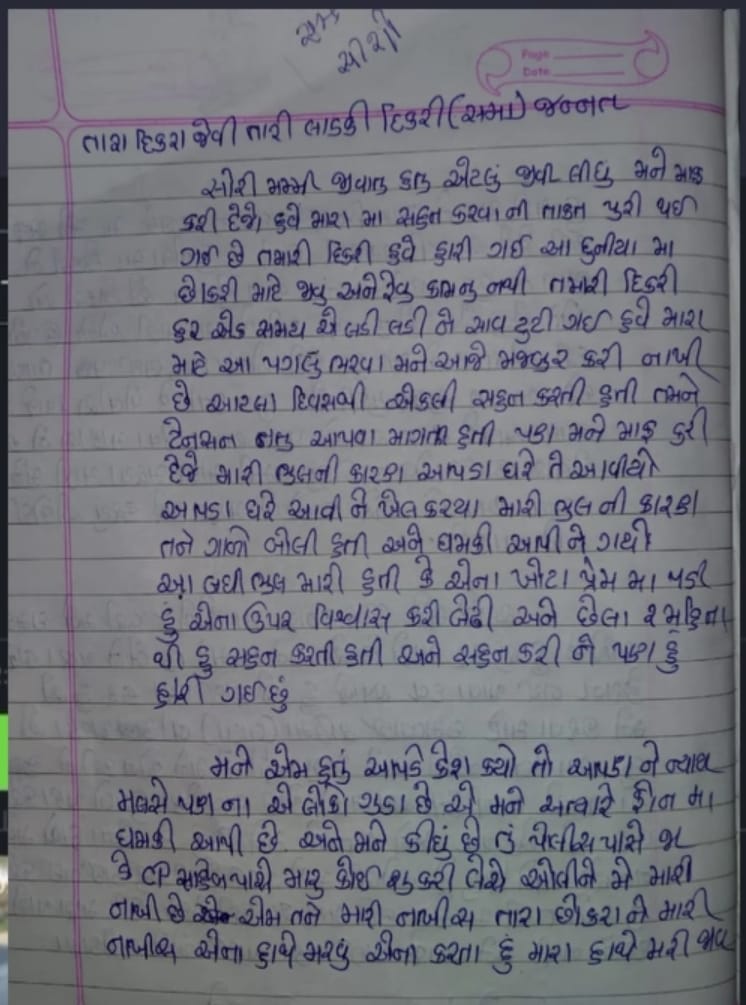 સમ
સીરી
Page
Date
તારા દિકરા જેવી તારી લાડકી દિકરી (સમા) જન્નત
સોરી મમ્મી જીવાતુ હતુ એટલું જીવી લીધું મને માફ
કરી દેજે, હવે મારા મા સહન કરવા ની તાકત પુરી થઈ
ગઈ છે તમારી દિકરી હવે હારી ગઈ આ દુનીયા મા
છોકરી માટે જીવુ અને રેવુ કામનુ નથી તમારી દિકરી
હર એક સમય એ લડી લડી ને સાવ ટુટી ગઈ હવે મારા
માટે આ પગલુ ભરવા મને આજે મજબુર કરી નાખી
છે આટલા દિવસથી એકલી સહન કરતી હતી તમને
ટેનસન નહતુ આપવા માગતી હતી પણ મને માફ કરી
દેજે મારી ભુલની કારણ આપડા ઘરે તે આવીયો
આપડા ઘરે આવી ને ખેલ કરયા મારી ભુલ ની કારણ
તને ગાળો બોલી હતી અને ધમકી આપી ને ગયો
આ બધી ભુલ મારી હતી કે એના ખોટા પ્રેમ મા પડી
હું એના ઉપર વિશ્વાસ કરી બેઠી અને છેલા ર મહિના
થી હુ સહન કરતી હતી અને સહન કરી ને પણ હું
હારી ગઈ છું
મને એમ હતું આપડે કેશ કર્યો તો આપણ ને ન્યાય
મલસે પણ ના એ લોકો ગુડા છે એ મને અત્યારે ફોન મા
ધમકી આપી છે અને મને કીધું છે તું પોલીસ પાસે જા
કે CP સાહેબ પાસે મારુ કોઈ શુ કરી લેશે ઓલીને મે મારી
નાખી છે એમ તને મારી નાખીસ તારા છોકરા ને મારી
નાખીસ એના હાથે મરવું એના કરતા હું મારા હાથે મરી જાવ